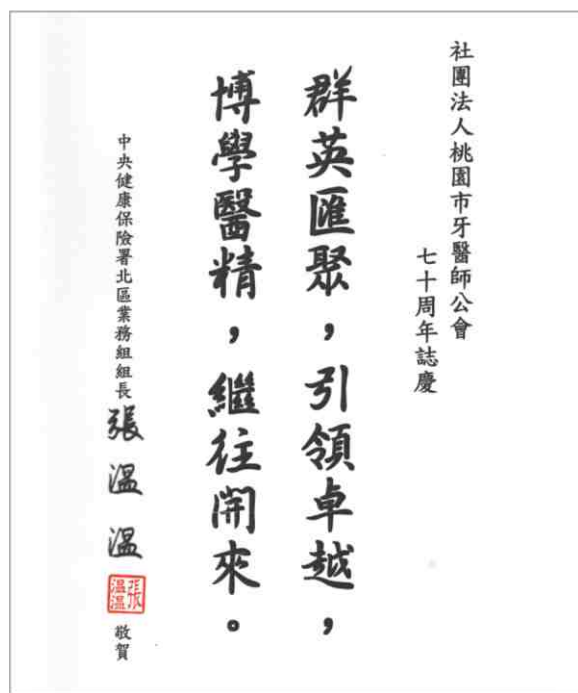 社團法人桃園市牙醫師公會
七十周年誌慶
群英匯聚，引領卓越，
博學醫精，繼往開來。
中央健康保險署北區業務組組長 張溫溫 張溫溫 敬賀